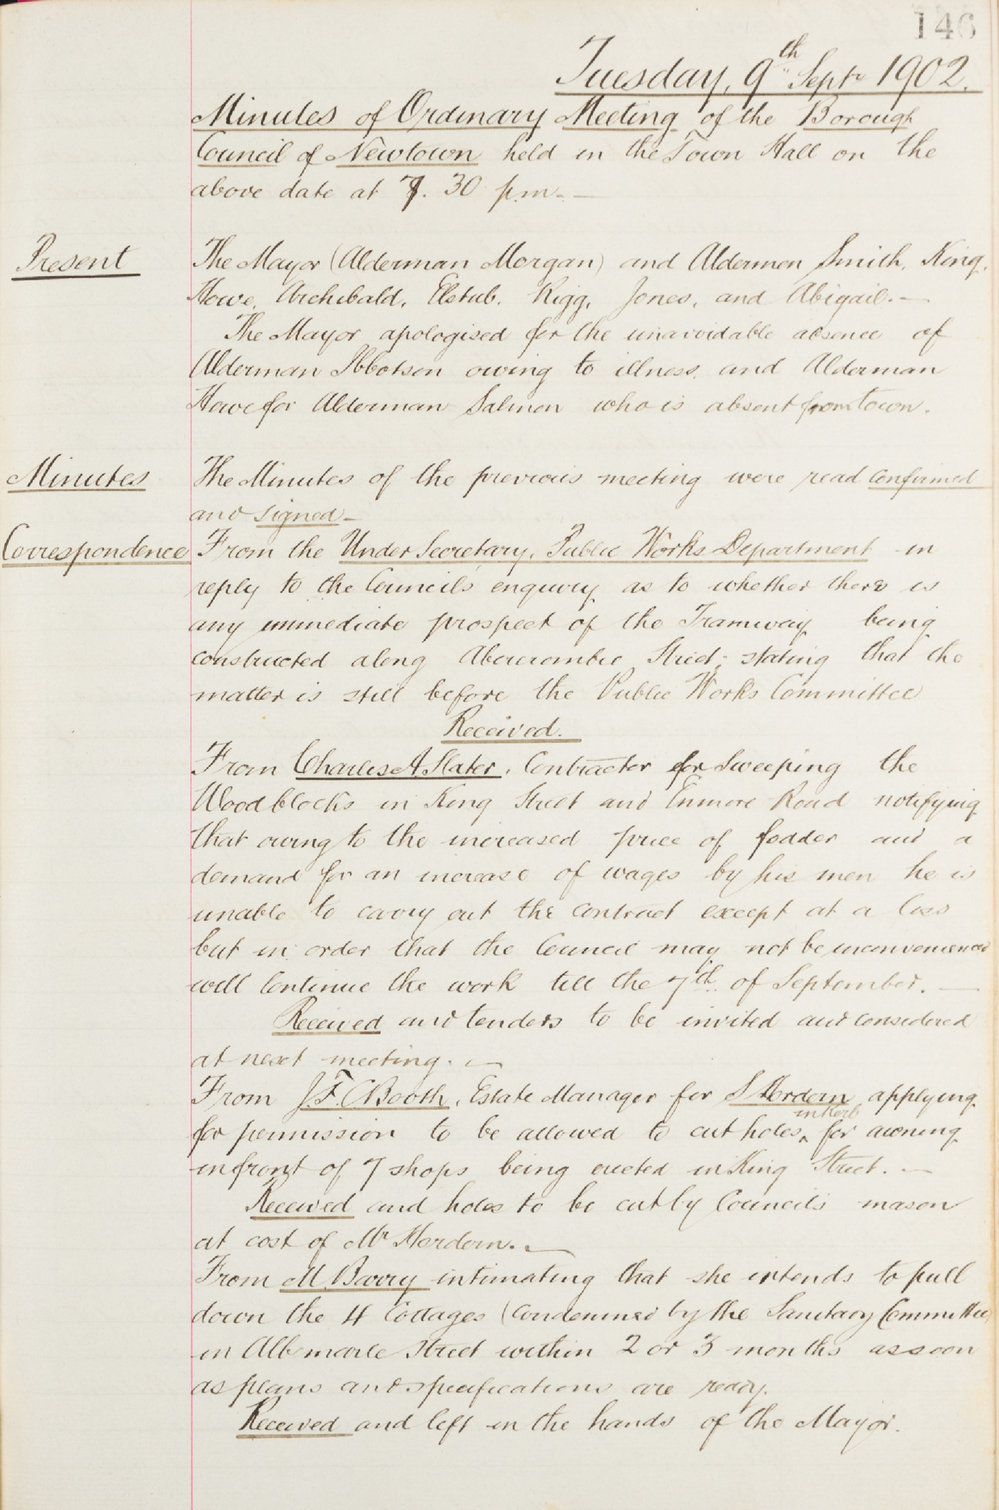 146
Tuesday, 9th Septr 1902.
Minutes of Ordinary Meeting of the Borough
Council of Newtown held in the Town Hall on the
above date at 7. 30 p.m. —
Present
The Mayor (Alderman Morgan) and Aldermen Smith, King,
Howe, Archibald, Elstub, Rigg, Jones, and Abigail. —
The Mayor apologised for the unavoidable absence of
Alderman Ibbotson owing to illness and Alderman
Howe for Alderman Salmon who is absent from town.
Minutes
The Minutes of the previous meeting were read confirmed
and signed —
Correspondence
From the Under Secretary, Public Works Department in
reply to the Council's enquiry as to whether there is
any immediate prospect of the Tramway being
constructed along Abercrombie Street; stating that the
matter is still before the Public Works Committee
Received.
From Charles A Slater, Contractor for Sweeping the
Woodblocks in King Street and Enmore Road notifying
that owing to the increased price of fodder and a
demand for an increase of wages by his men he is
unable to carry out the contract except at a loss
but in order that the Council may not be inconvenienced
will continue the work till the 7th of September. —
Received and tenders to be invited and considered
at next meeting. —
From J. F. C Booth, Estate Manager for S Hordern applying
for permission to be allowed to cut holes in Kerb for awning
in front of 7 shops being erected in King Street. —
Received and holes to be cut by Council's mason
at cost of Mr Hordern. —
From M. Barry intimating that she intends to pull
down the 4 Cottages (Condemned by the Sanitary Committee)
in Albemarle Street within 2 or 3 months as soon
as plans and specifications are ready.
Received and left in the hands of the Mayor.